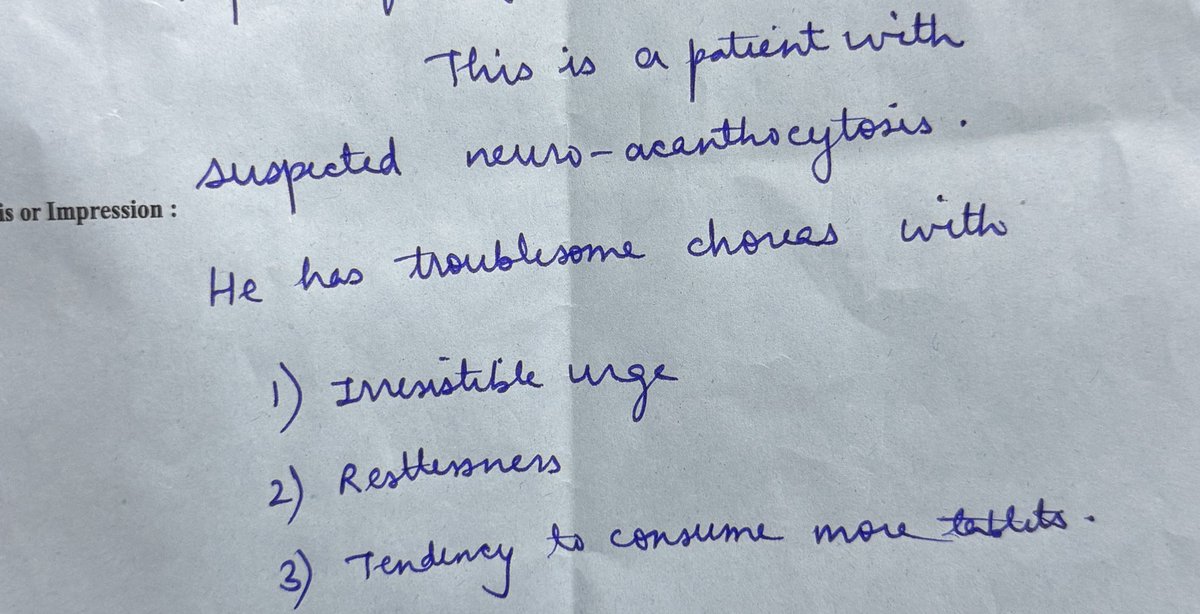 This is a patient with
suspected neuro-acanthocytosis.
is or Impression :
He has troublesome choreas with
1) Irresistible urge
2) Restlessness
3) Tendency to consume more tablets.